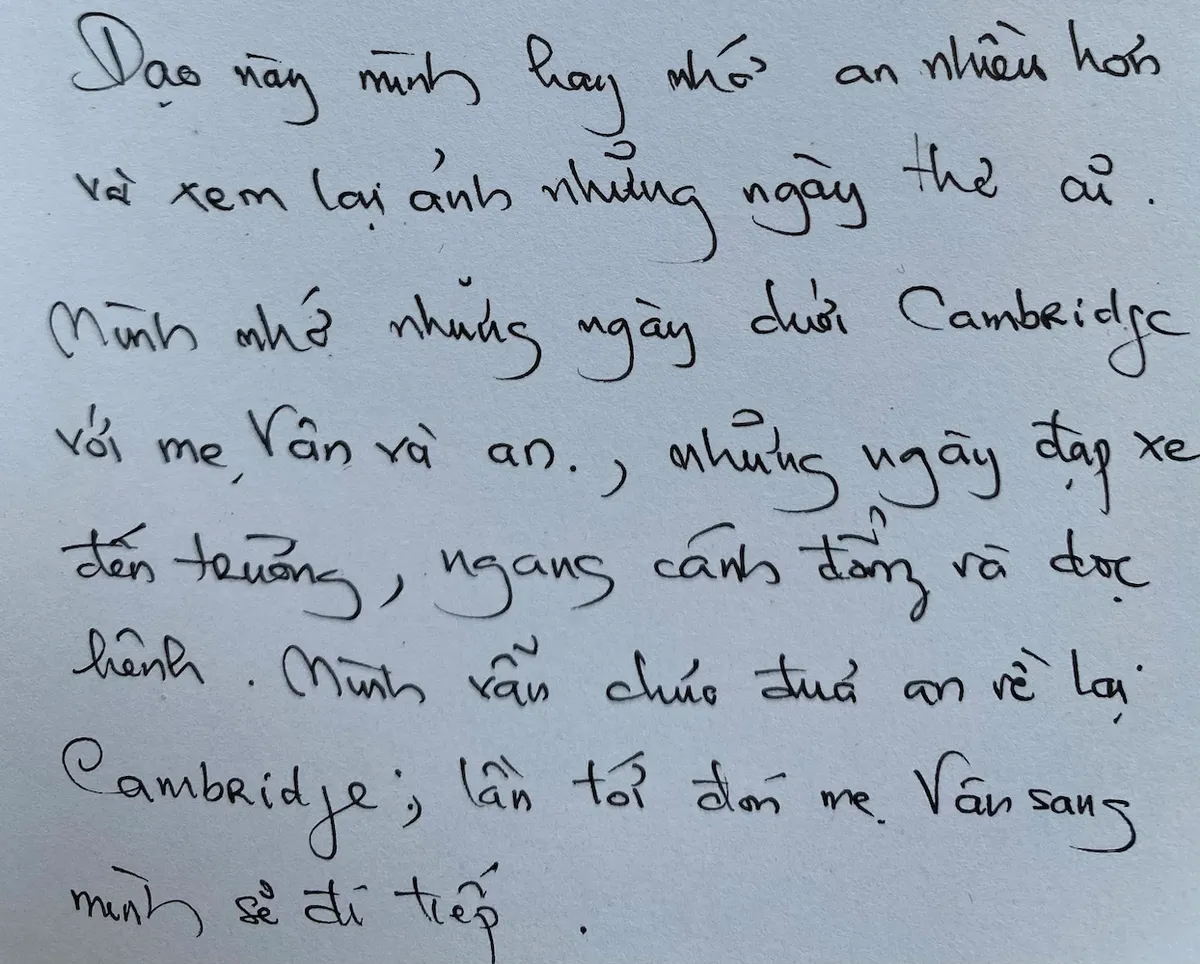 Dạo này mình hay nhớ an nhiều hơn
và xem lại ảnh những ngày thơ ấu.
Mình nhớ những ngày dưới Cambridge
với mẹ Vân và an., những ngày đạp xe
đến trường, ngang cánh đồng và dọc
kênh. Mình vẫn chưa đưa an về lại
Cambridge; lần tới đón mẹ Vân sang
mình sẽ đi tiếp.